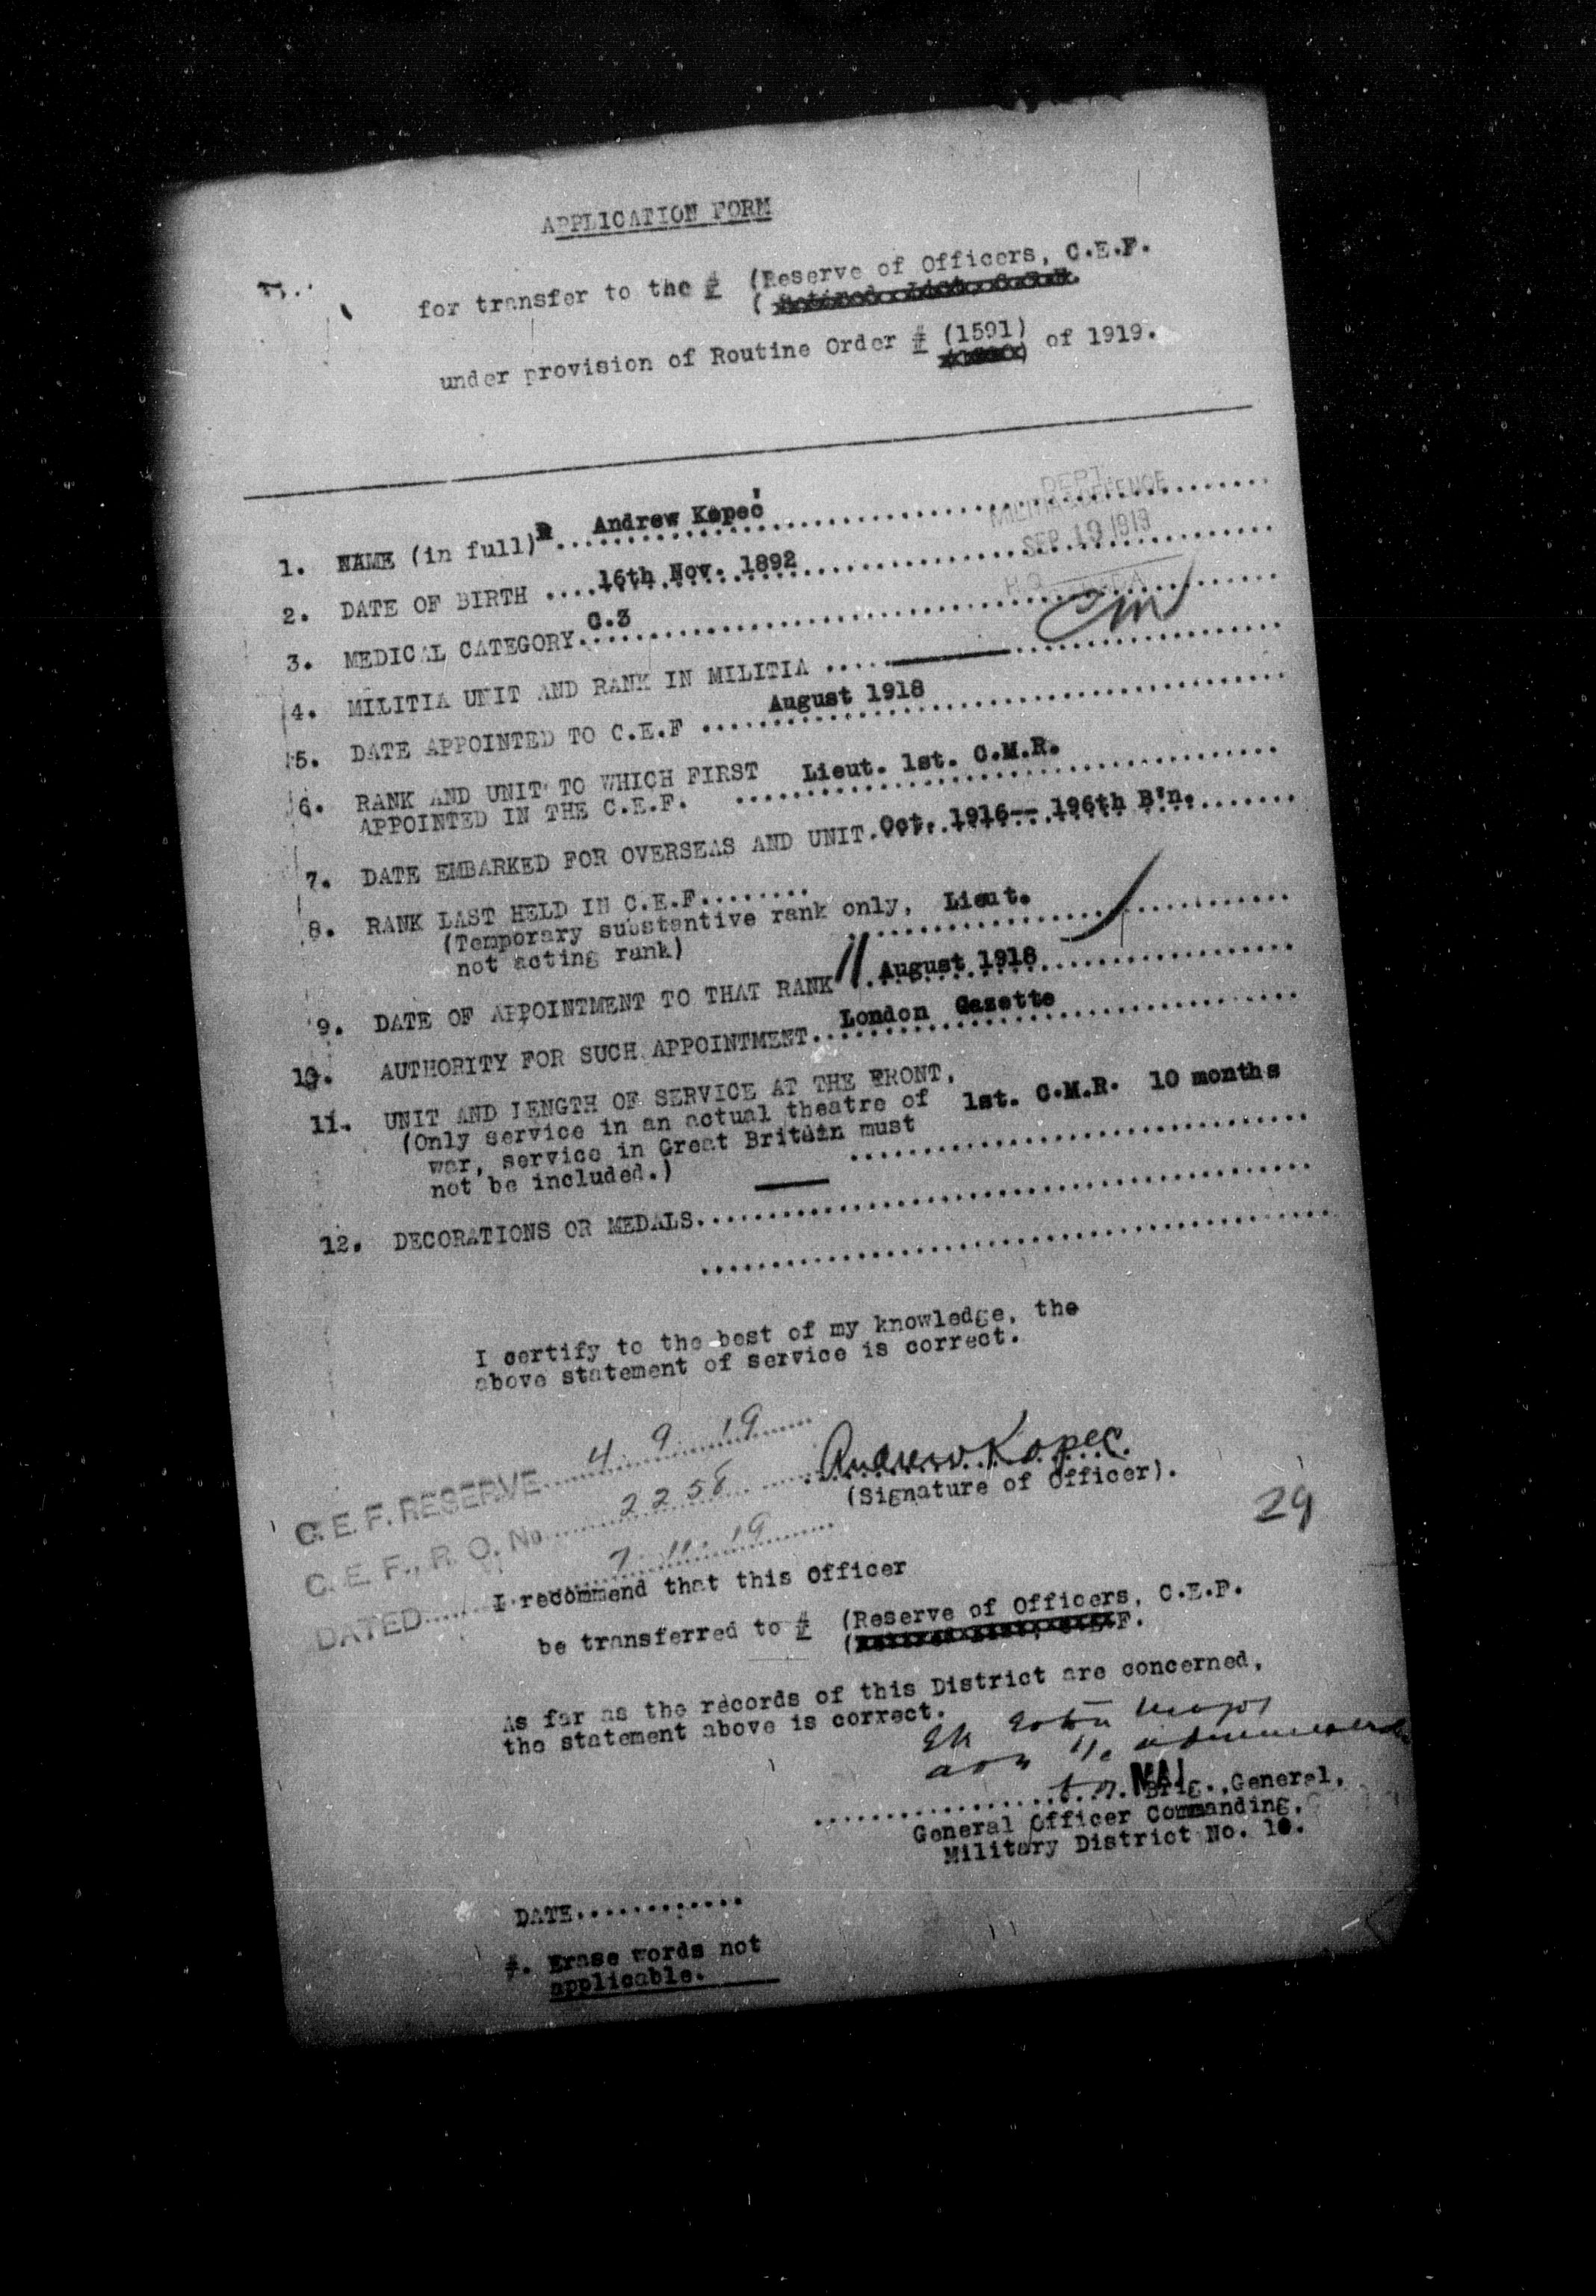 APPLICATION FORM
for transfer to the # (Reserve of Officers, C.E.F.
(
under provision of Routine Order # (1591) of 1919.
DEPT.
MILITIA & DEFENCE
SEP 19 1919
H.Q.
1. NAME (in full) Andrew Kopec'
2. DATE OF BIRTH .... 16th Nov. 1892
3. MEDICAL CATEGORY. C.3
4. MILITIA UNIT AND RANK IN MILITIA ....
5. DATE APPOINTED TO C.E.F .... August 1918
6. RANK AND UNIT TO WHICH FIRST Lieut. 1st. C.M.R.
APPOINTED IN THE C.E.F.
7. DATE EMBARKED FOR OVERSEAS AND UNIT. Oct. 1916-- 196th B'n.
8. RANK LAST HELD IN C.E.F........
(Temporary substantive rank only, Lieut.
not acting rank)
9. DATE OF APPOINTMENT TO THAT RANK 11 August 1918
10. AUTHORITY FOR SUCH APPOINTMENT.. London Gazette
11. UNIT AND LENGTH OF SERVICE AT THE FRONT,
(Only service in an actual theatre of 1st. C.M.R. 10 months
war, service in Great Britain must
not be included.)
12. DECORATIONS OR MEDALS
I certify to the best of my knowledge, the
above statement of service is correct.
C. E. F. RESERVE 4 9 19
Andrew Kopec
(Signature of Officer).
C. E. F., R. O. No 2258
29
DATED 7.11.19
I recommend that this Officer
be transferred to # (Reserve of Officers, C.E.F.
( F.
As far as the records of this District are concerned,
the statement above is correct.
for MAJ. Brig. General,
General Officer Commanding,
Military District No. 10.
DATE............
#. Erase words not
applicable.